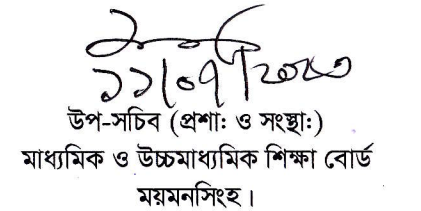 ১১/০৭/২০২৩
উপ-সচিব (প্রশাঃ ও সংস্থাঃ)
মাধ্যমিক ও উচ্চমাধ্যমিক শিক্ষা বোর্ড
ময়মনসিংহ।